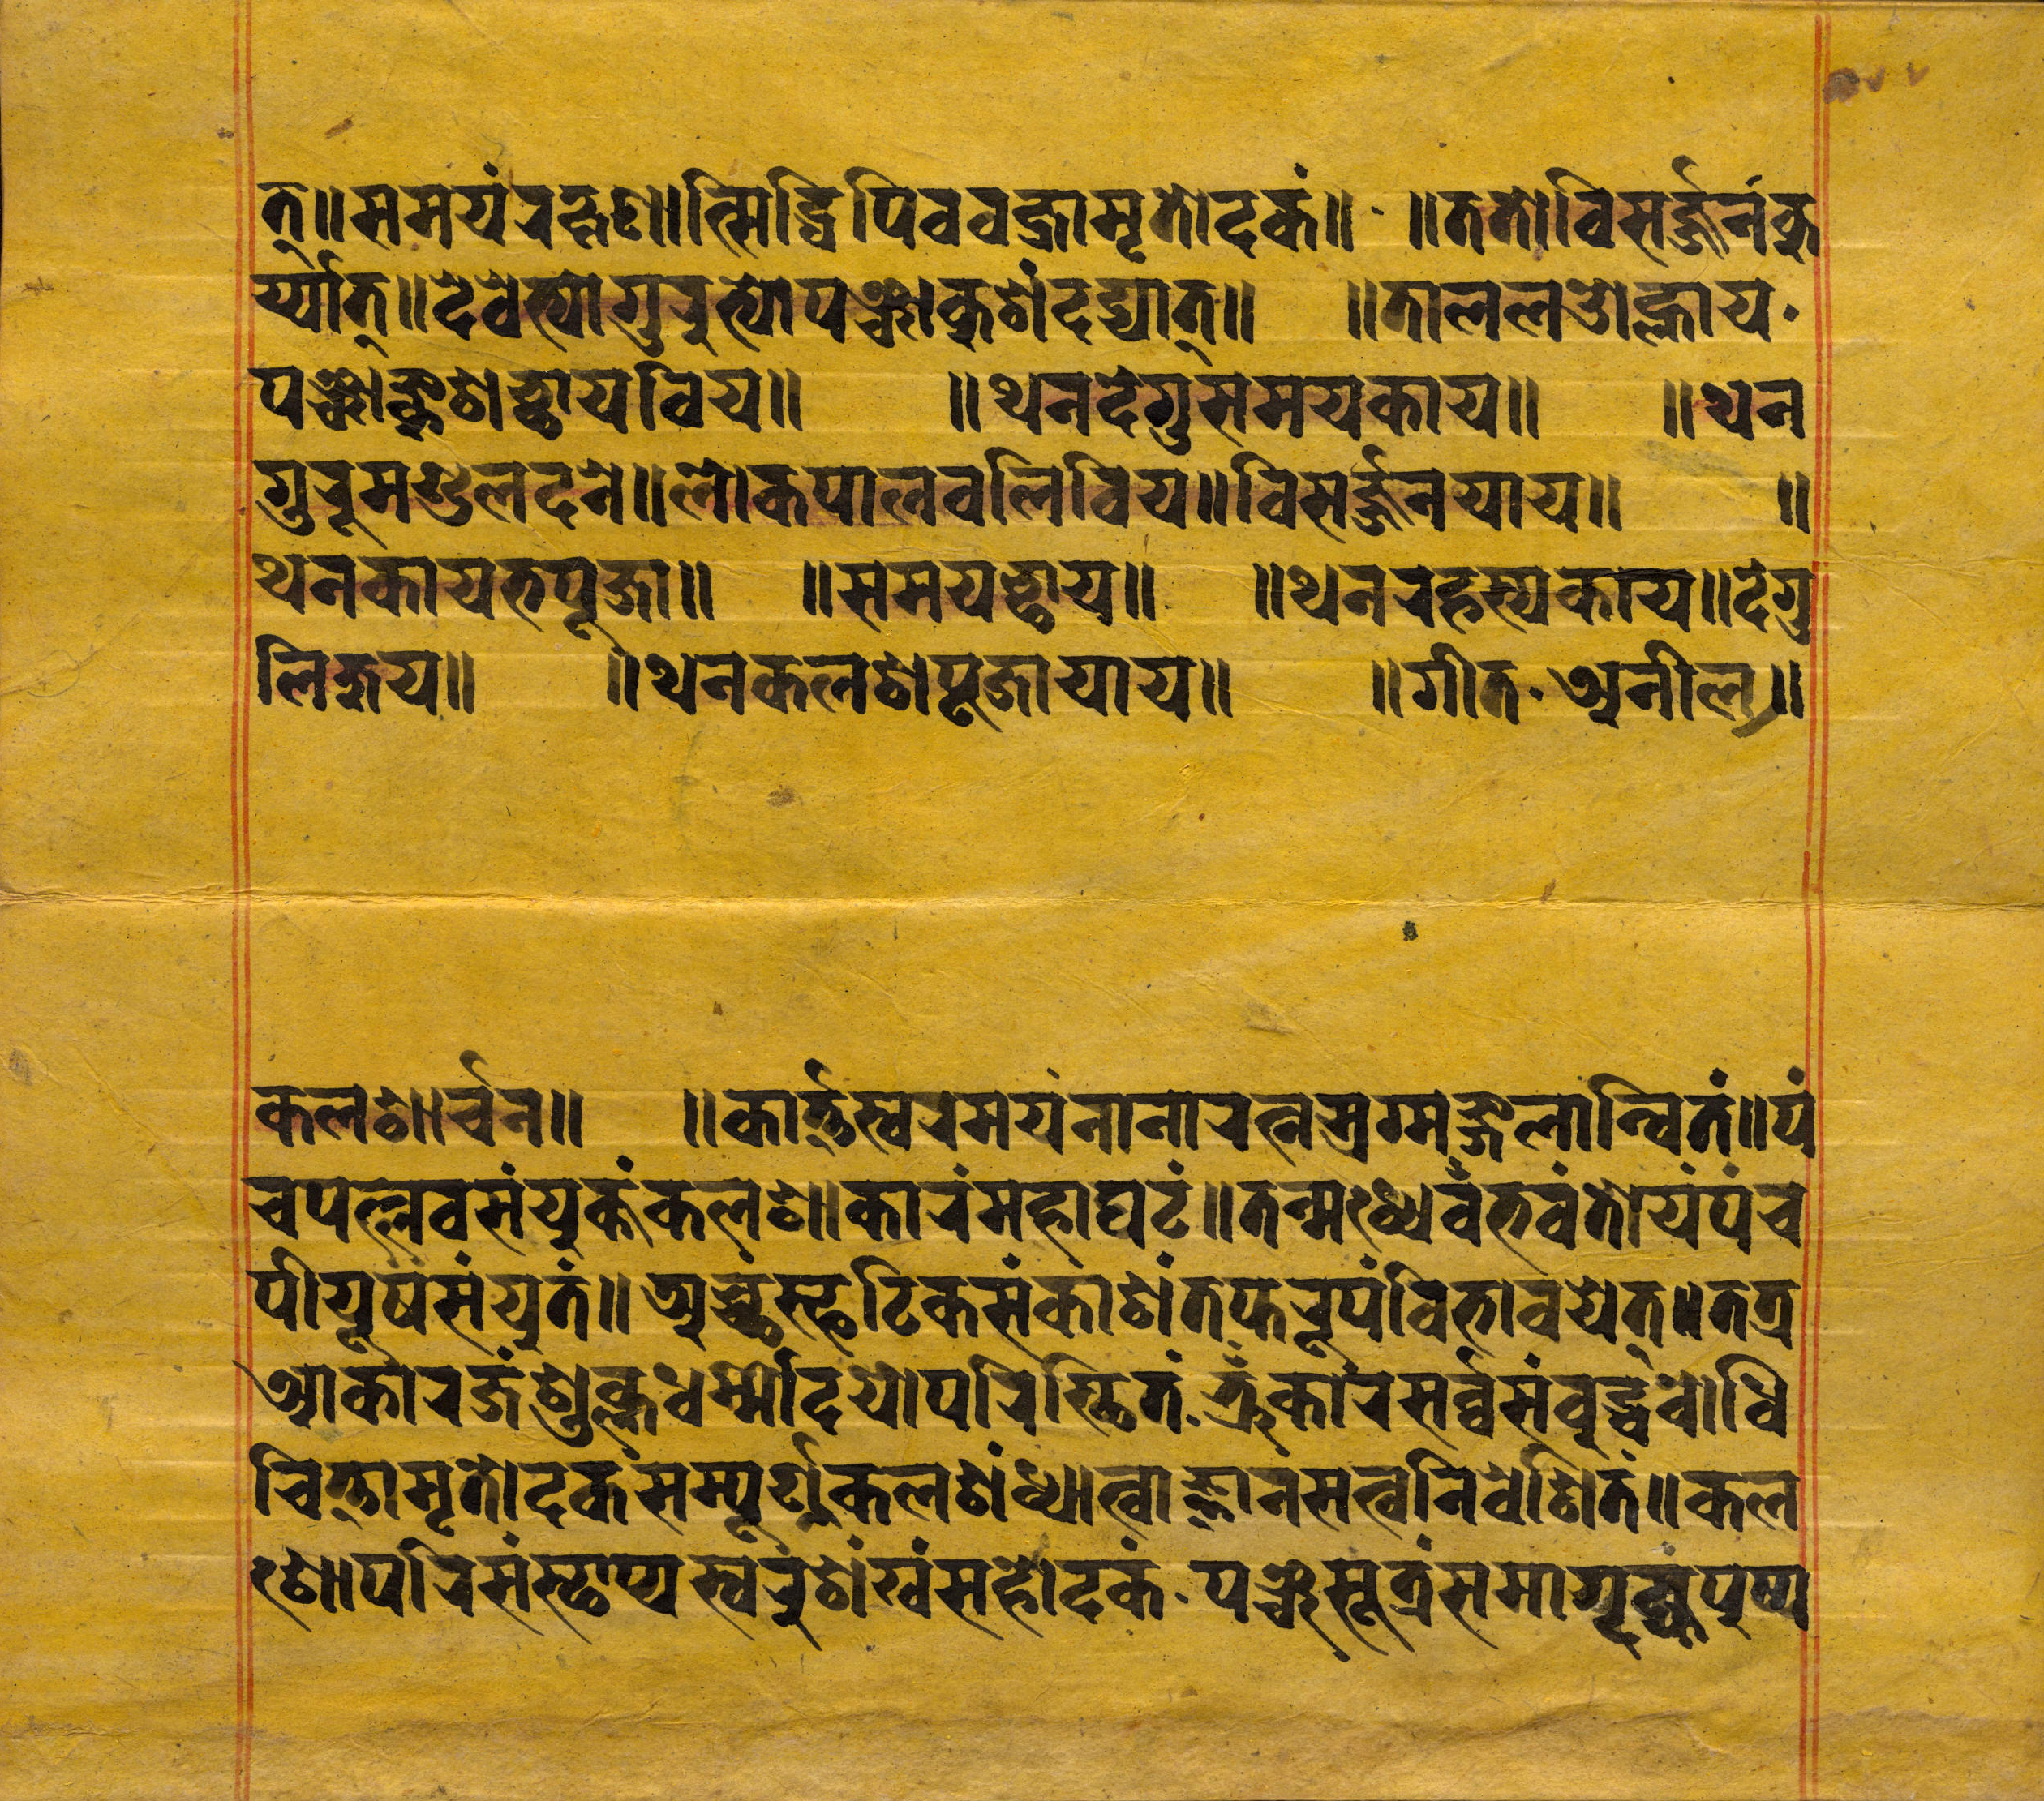 त्॥समयंरह्नण॥त्सिद्धिपिववज्रामृतोदकं॥ ॥ततोविसर्ज्जनंकु
र्य्यात्॥देवेभ्योगुरुभ्योपञ्चाकुशंदद्यात्॥ ॥तालल
पञ्चाङ्कुशछायविय॥ ॥थनदेगुसमयकाय॥ ॥थन
गुरूमण्डलदने॥लोकपालवलिविय॥विसर्ज्जनयाय॥ ॥
थनकायभपूजा॥ ॥समयछाय॥ ॥थनरहस्यकाय॥देगु
लिजुय॥ ॥थनकलशपूजायाय॥ ॥गीत·अनील॥
कलशार्चन॥ ॥कार्त्तस्वरमयंनानारत्नस्रग्मङ्गलान्वितं॥पं
चपल्लवसंयुक्तंकलशाकारंमहाघटं॥तन्मध्येवँभवंतोयंपंच
पीयूषसंयुतं॥अच्छस्फटिकसंकाशंतप्तरूपंविभावयेत्॥तत्र
आकारजंशुक्लधर्म्मोदयोपरिस्थितं·त्रुँकारसर्व्वसंवुद्धवोधि
चित्तामृतोदकंसम्पूर्ण्णकलशंध्यात्वाज्ञानसत्वनिवेशितं॥कल
शोपरिसंस्थाप्यस्वरुशंखंसहोदकं·पञ्चसूत्रंसमागृह्यपुष्प